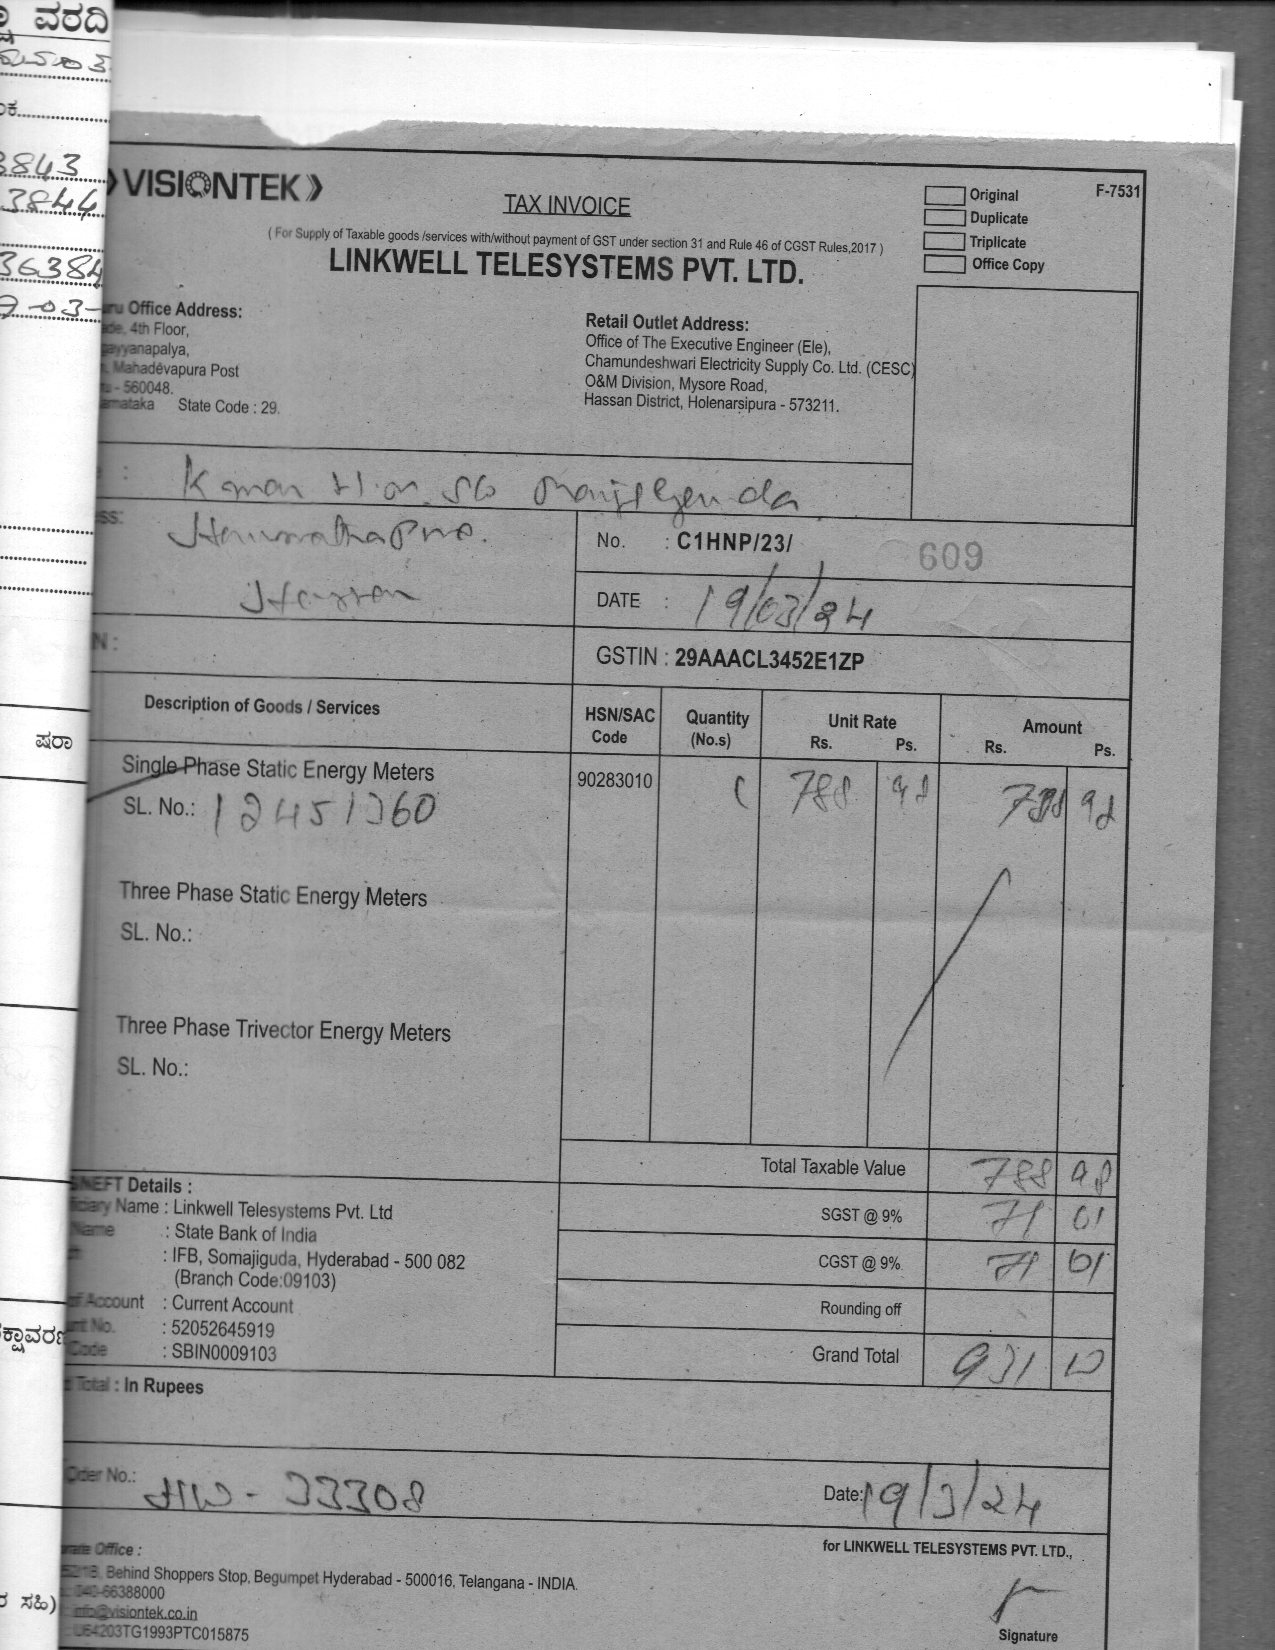 ವರದಿ
3843
3844
36384
VISIONTEK
F-7531
TAX INVOICE
Original
Duplicate
Triplicate
Office Copy
( For Supply of Taxable goods /services with/without payment of GST under section 31 and Rule 46 of CGST Rules,2017 )
LINKWELL TELESYSTEMS PVT. LTD.
Office Address:
4th Floor,
Mahadevapura Post
- 560048.
State Code : 29.
Retail Outlet Address:
Office of The Executive Engineer (Ele),
Chamundeshwari Electricity Supply Co. Ltd. (CESC)
O&M Division, Mysore Road,
Hassan District, Holenarsipura - 573211.
No. : C1HNP/23/ 609
Hassan
DATE : 19/03/24
GSTIN : 29AAACL3452E1ZP
ಷರಾ
Description of Goods / Services
HSN/SAC Code
Quantity (No.s)
Unit Rate Rs. Ps.
Amount Rs. Ps.
Single Phase Static Energy Meters 90283010 1 788 98 788 98
SL. No.:
Three Phase Static Energy Meters
SL. No.:
Three Phase Trivector Energy Meters
SL. No.:
Total Taxable Value 788 98
SGST @ 9% 71 01
CGST @ 9% 71 01
Rounding off
Grand Total 931 00
NEFT Details :
Name : Linkwell Telesystems Pvt. Ltd
Name : State Bank of India
: IFB, Somajiguda, Hyderabad - 500 082
(Branch Code:09103)
Account : Current Account
No. : 52052645919
Code : SBIN0009103
Total : In Rupees
Order No.: 33308
Date: 19/3/24
for LINKWELL TELESYSTEMS PVT. LTD.,
Office :
Behind Shoppers Stop, Begumpet Hyderabad - 500016, Telangana - INDIA.
040-66388000
info@visiontek.co.in
U64203TG1993PTC015875
ಸಹಿ)
Signature